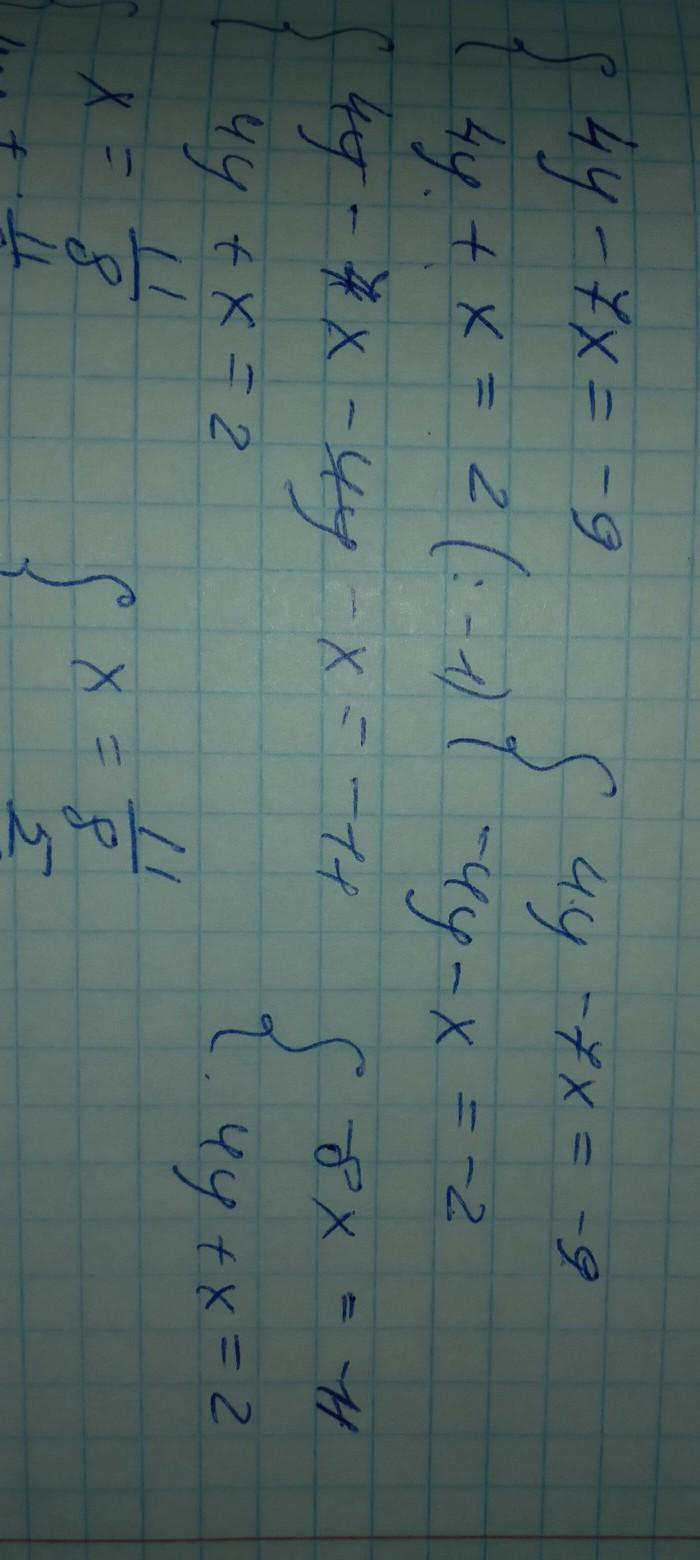 { 4y - 7x = -9
{ 4y + x = 2 (: -1)
{ 4y - 7x = -9
{ -4y - x = -2
{ 4y - 7x - 4y - x = -11
{ 4y + x = 2
{ -8x = -11
{ 4y + x = 2
{ x = 11/8
{ x = 11/8